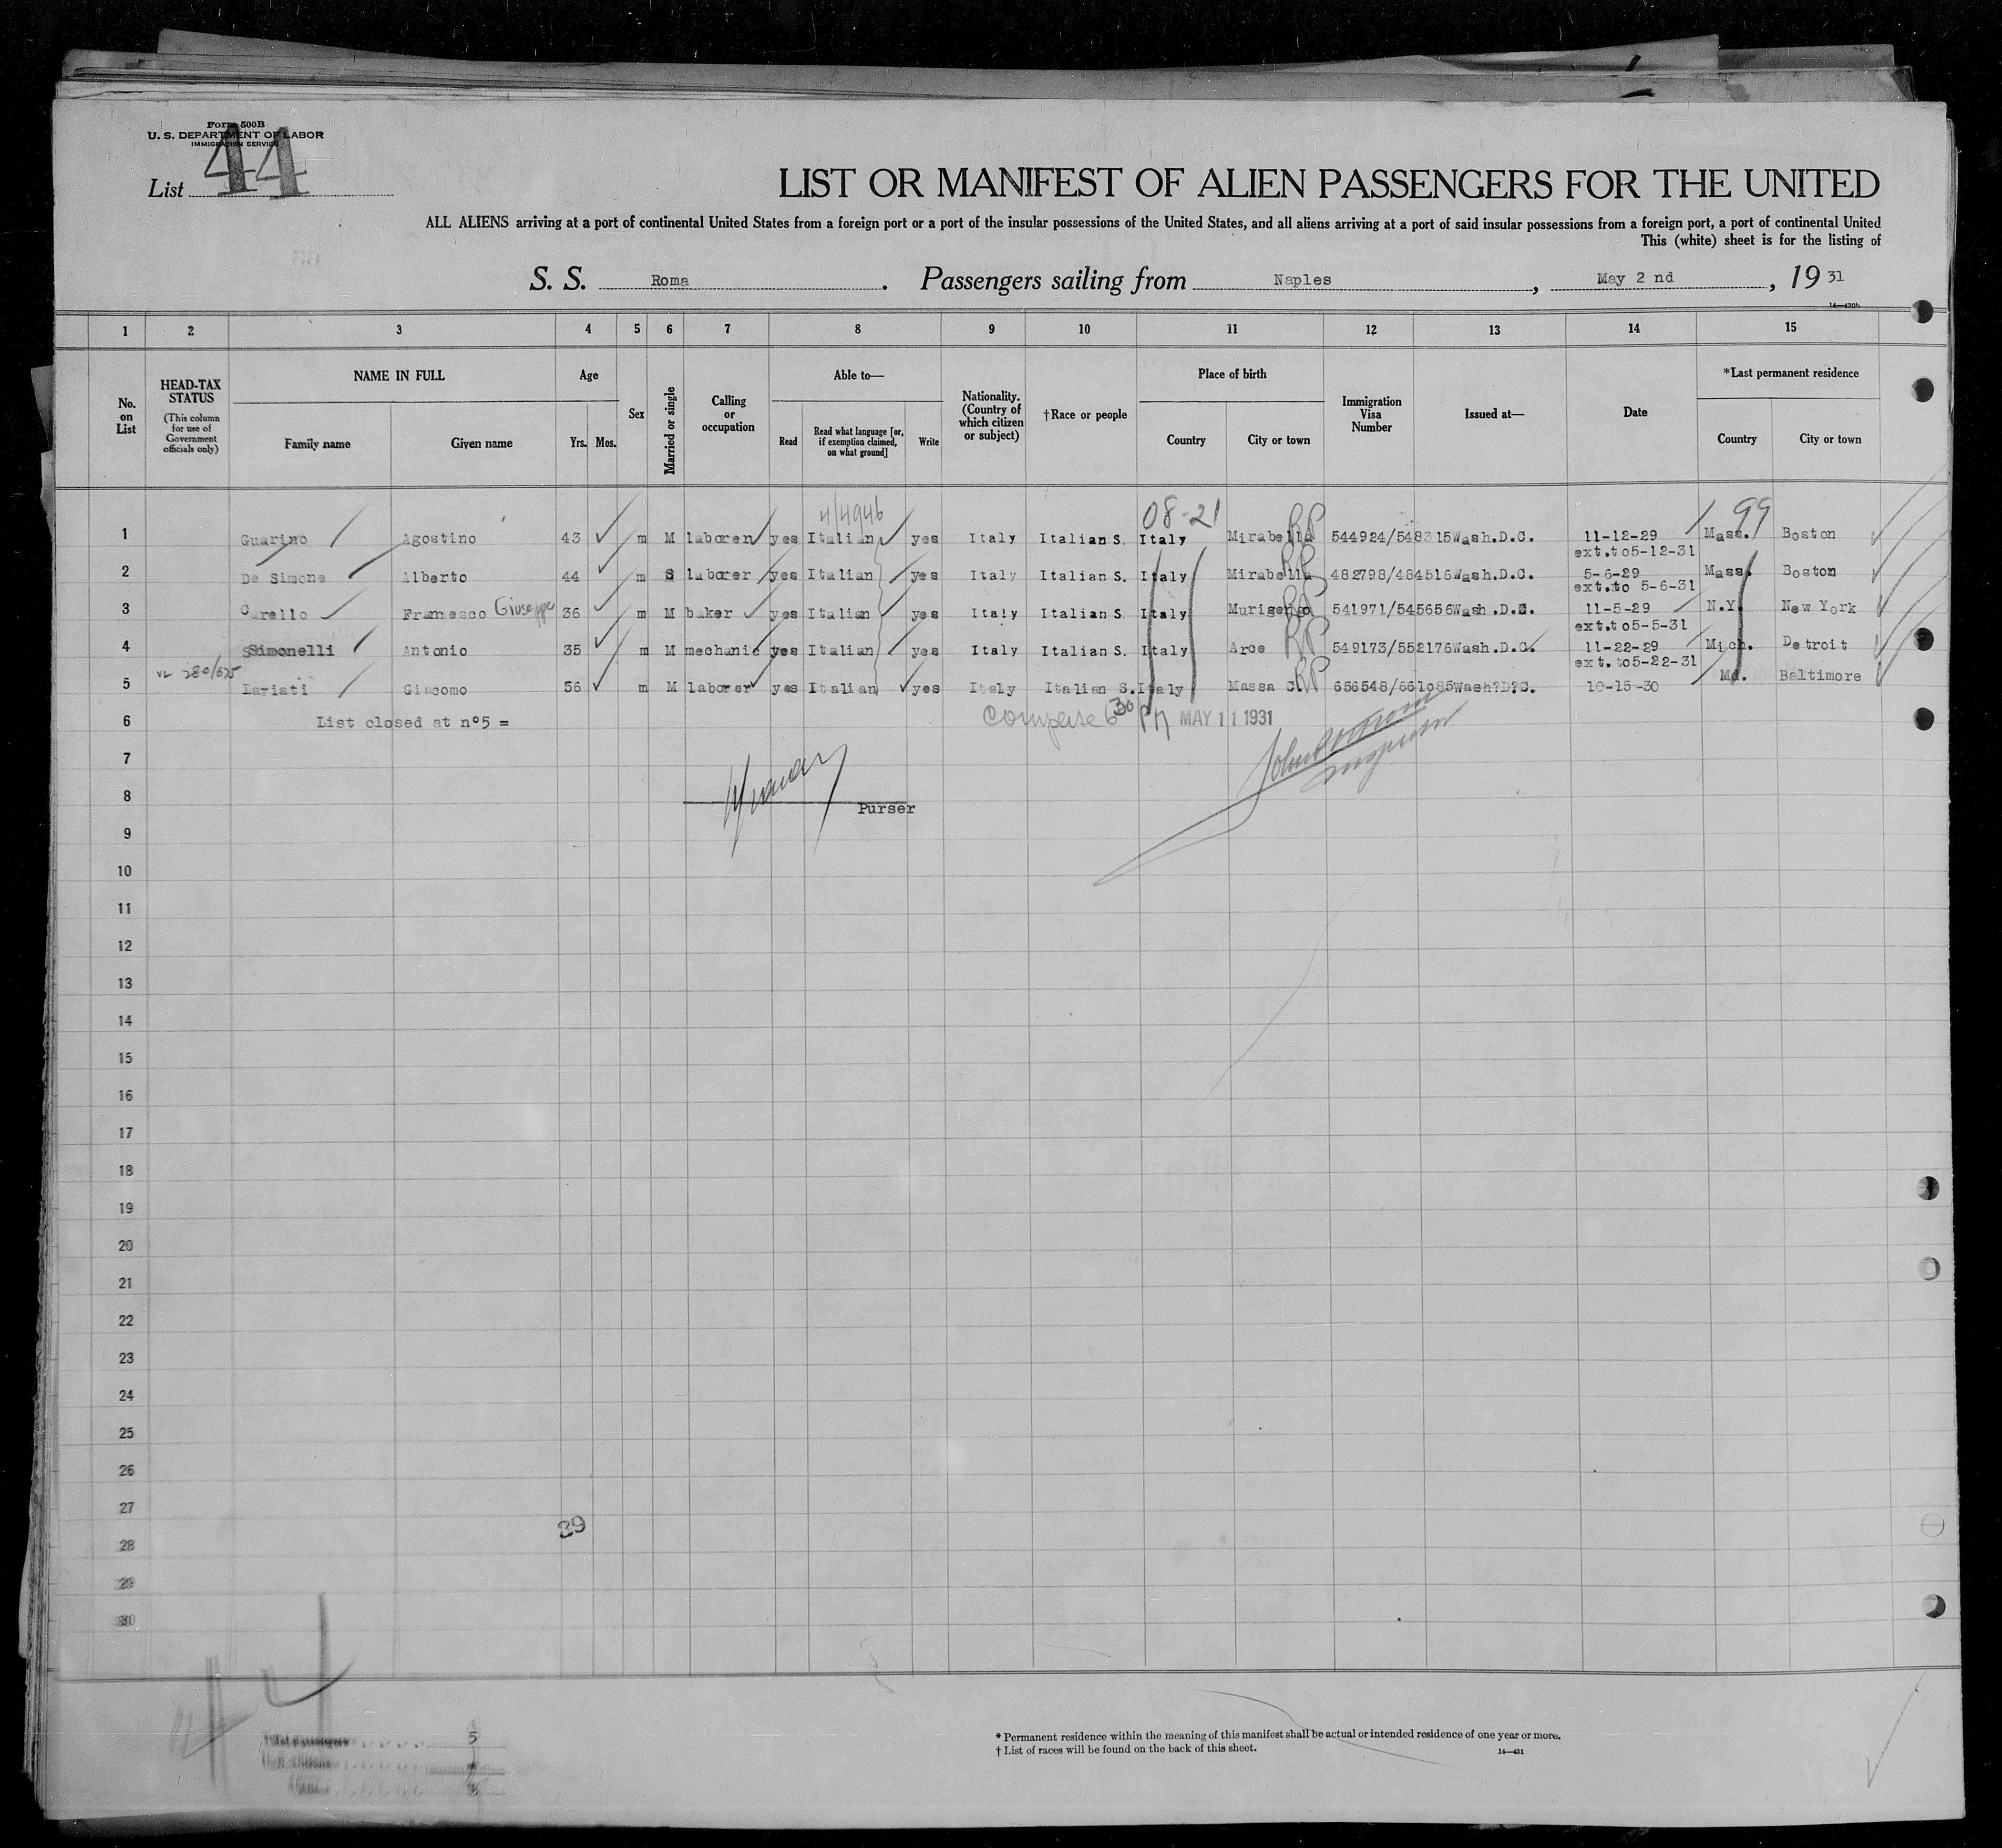 Form 500B
U. S. DEPARTMENT OF LABOR
IMMIGRATION SERVICE
List 44
LIST OR MANIFEST OF ALIEN PASSENGERS FOR THE UNITED
ALL ALIENS arriving at a port of continental United States from a foreign port or a port of the insular possessions of the United States, and all aliens arriving at a port of said insular possessions from a foreign port, a port of continental United
This (white) sheet is for the listing of
S. S. Roma. Passengers sailing from Naples, May 2 nd, 19 31
14—430b
1 2 3 4 5 6 7 8 9 10 11 12 13 14 15
No. on List
HEAD-TAX STATUS
(This column for use of Government officials only)
NAME IN FULL
Family name
Given name
Age
Yrs. Mos.
Sex
Married or single
Calling or occupation
Able to—
Read
Read what language [or, if exemption claimed, on what ground]
Write
Nationality. (Country of which citizen or subject)
†Race or people
Place of birth
Country
City or town
Immigration Visa Number
Issued at—
Date
*Last permanent residence
Country
City or town
4/4946 08-21 99
1 Guarino Agostino 43 m M laborer yes Italian yes Italy Italian S. Italy Mirabella RP 544924/548315 Wash.D.C. 11-12-29 Mass. Boston
ext.to 5-12-31
2 De Simone Alberto 44 m S laborer yes Italian yes Italy Italian S. Italy Mirabella RP 482798/484516 Wash.D.C. 5-6-29 Mass. Boston
ext.to 5-6-31
3 Carello Francesco Giuseppe 36 m M baker yes Italian yes Italy Italian S. Italy RP 541971/545656 Wash.D.C. 11-5-29 N.Y. New York
ext.to 5-5-31
4 Simonelli Antonio 35 m M mechanic yes Italian yes Italy Italian S. Italy Arce RP 549173/552176 Wash.D.C. 11-22-29 Mich. Detroit
ext.to 5-22-31
VL 280/625
5 Lariati Giacomo 56 m M laborer yes Italian yes Italy Italian S. Italy Massa C. RP 656548/661o85 Wash?D?C. 10-15-30 Md. Baltimore
6 List closed at nº5 =
6 30 PM MAY 11 1931
7
8
Purser
9
10
11
12
13
14
15
16
17
18
19
20
21
22
23
24
25
26
27
39
28
29
30
5
* Permanent residence within the meaning of this manifest shall be actual or intended residence of one year or more.
† List of races will be found on the back of this sheet.
14—431